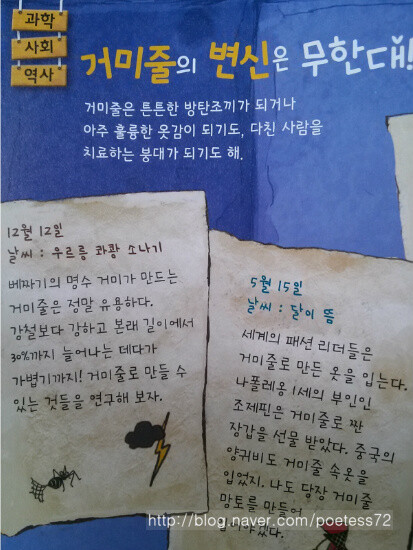 과학
사회
역사
거미줄의 변신은 무한대!
거미줄은 튼튼한 방탄조끼가 되거나
아주 훌륭한 옷감이 되기도, 다친 사람을
치료하는 붕대가 되기도 해.
12월 12일
날씨 : 우르릉 콰쾅 소나기
베짜기의 명수 거미가 만드는
거미줄은 정말 유용하다.
강철보다 강하고 본래 길이에서
30%까지 늘어나는 데다가
가볍기까지! 거미줄로 만들 수
있는 것들을 연구해 보자.
5월 15일
날씨 : 달이 뜸
세계의 패션 리더들은
거미줄로 만든 옷을 입는다.
나폴레옹 1세의 부인인
조제핀은 거미줄로 짠
장갑을 선물 받았다. 중국의
양귀비도 거미줄 속옷을
입었지. 나도 당장 거미줄
망토를 만들어
http://blog.naver.com/poetess72